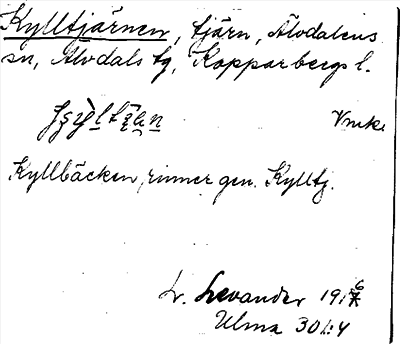 Kylltjärnen, tjärn, Älvdalens
sn, Älvdals tg, Kopparbergs l.
Kyllbäcken rinner gen. Kylltj.
L. Levander 1916
Ulma 301:4